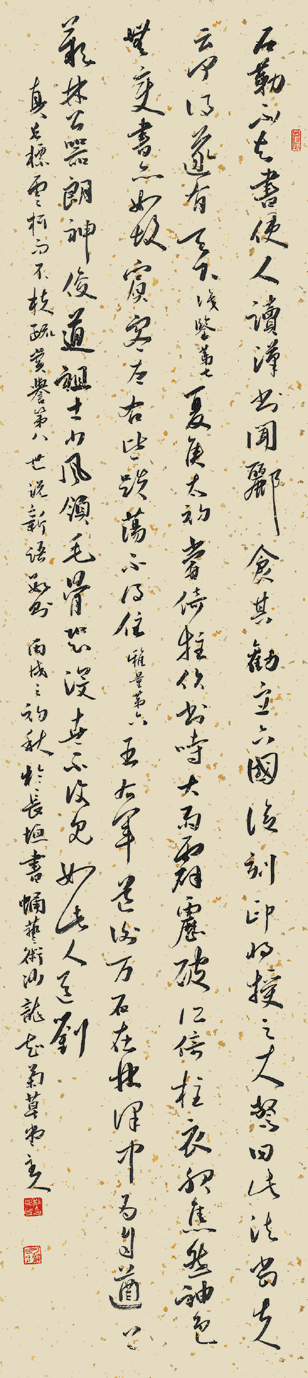 石勒不知書使人讀漢書聞酈食其勸立六國後刻印將授之大驚曰此法當失
云何得遂有天下識鑒第七夏侯太初嘗倚柱作書時大雨霹靂破所倚柱衣服焦然神色
無變書亦如故賓客左右皆跌蕩不得住雅量第六王右軍道謝萬石在林澤中為自遒上
歎林公器朗神俊道祖士少風領毛骨恐沒世不復見如此人道劉
真長標雲柯而不扶疏賞譽第八世說新語數則丙戌之初秋於長垣書蝸藝術沙龍菊草堂主人